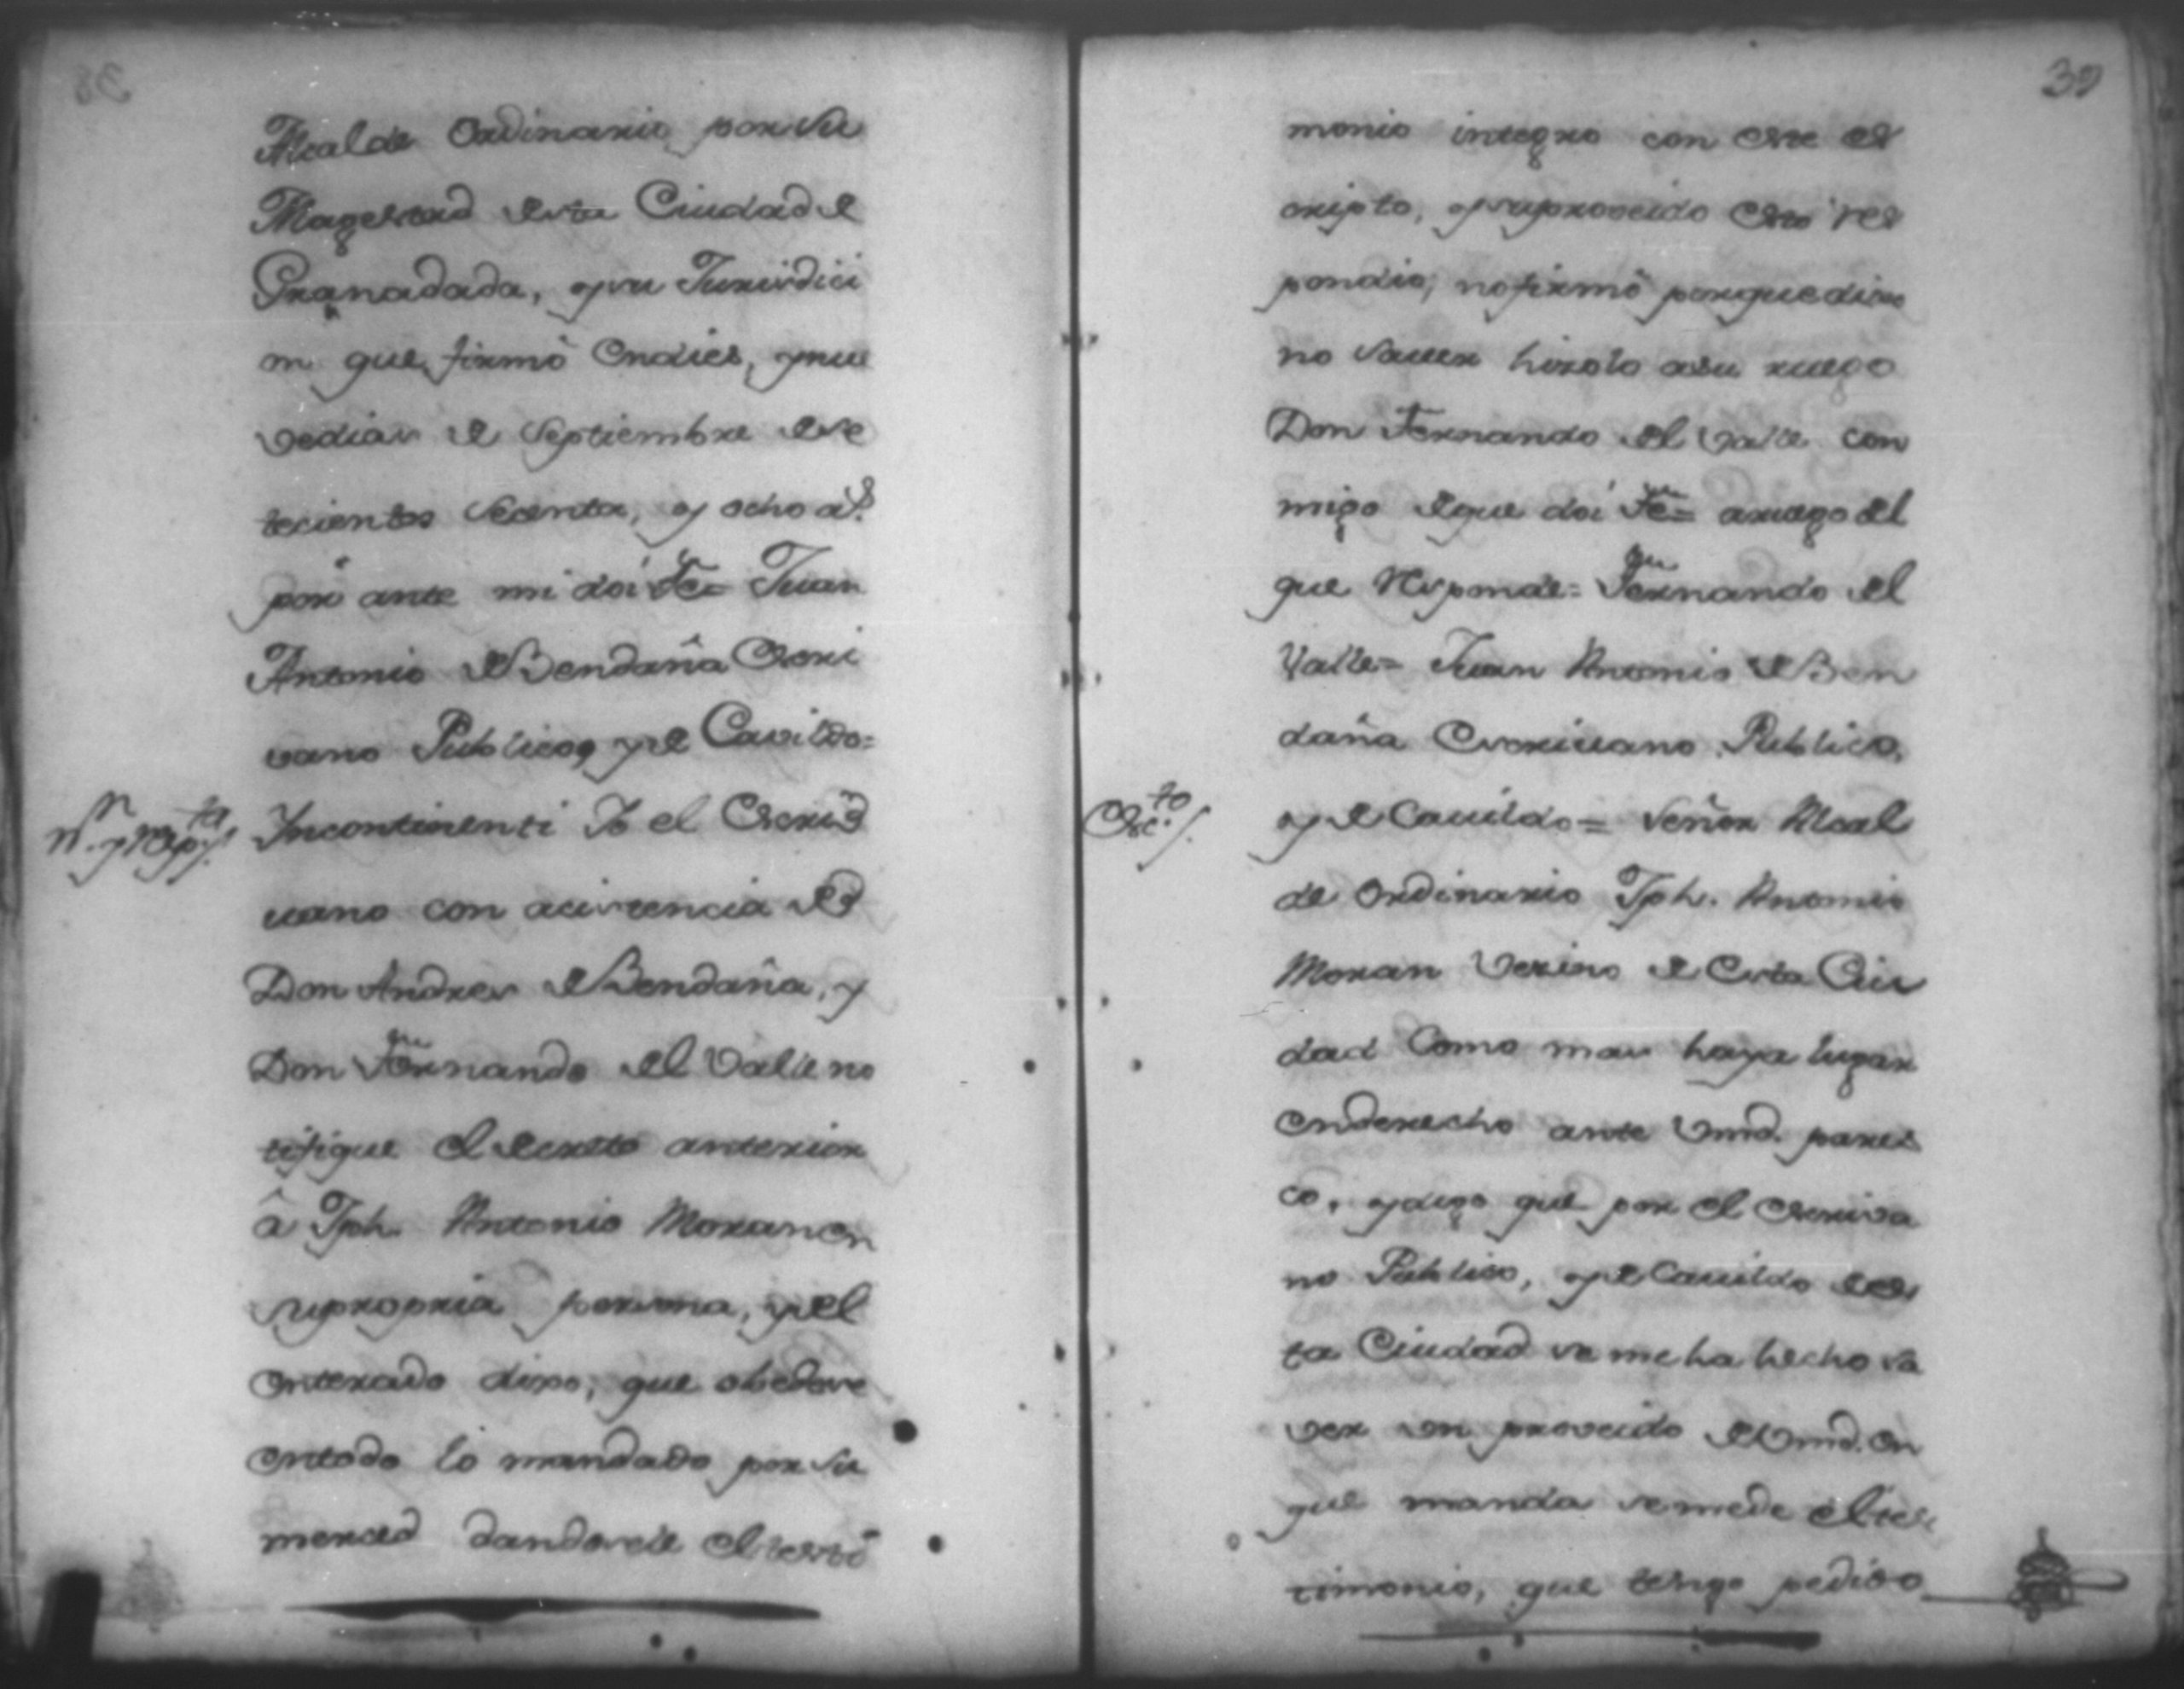 Alcalde Ordinario, por su
Magestad desta Ciudad de
Granadada, y su Jurisdici
on que firmó en dies, y nue
ve dias de Septiembre de se
tecientos sesenta, y ocho a.s
por ante mi doi fe= Juan
Antonio de Bendaña Escri
vano Publico, y de Cavildo=
N.n y resp.ta /. Incontinenti Yo el Escri
uano con acistencia de
Don Andres de Bendaña, y
Don Fernando del Valle no
tifique el decreto anterior
â Jph. Antonio Moran en
su propria persona, y del
enterado dixo, que obedese
en todo lo mandado por su
merced dandosele el testi
39
monio integro con este es
cripto, y su proveido esto res
pondio, no firmó porque dixo
no sauer hizolo a su ruego
Don Fernando del Valle con
migo de que doi fe= a ruego del
que responde= Fernando del
Valle= Juan Antonio de Ben
daña Escriuano Publico,
Esc.to /. y de Cauildo= Señor Alcal
de Ordinario Jph. Antonio
Moran Vezino de esta Ciu
dad Como mas haya lugar
en derecho ante Vmd. pares
co, y digo que por el Escriva
no Publico, y de Cauildo de es
ta Ciudad se me ha hecho sa
ver un proveido de Vmd. en
que manda se me de el tes
timonio, que tengo pedido